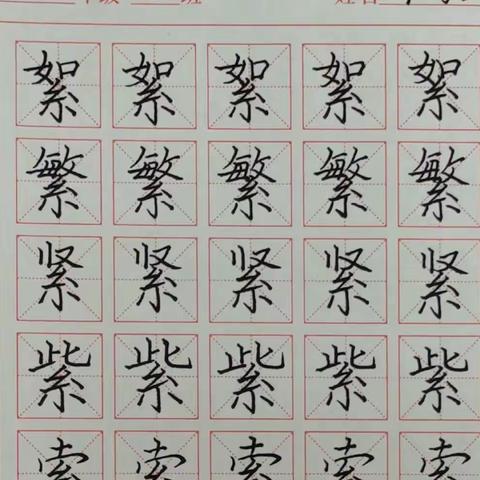 年级 班 姓名
絮 絮 絮 絮 絮
繁 繁 繁 繁 繁
紧 紧 紧 紧 紧
紫 紫 紫 紫 紫
索 索 索 索 索